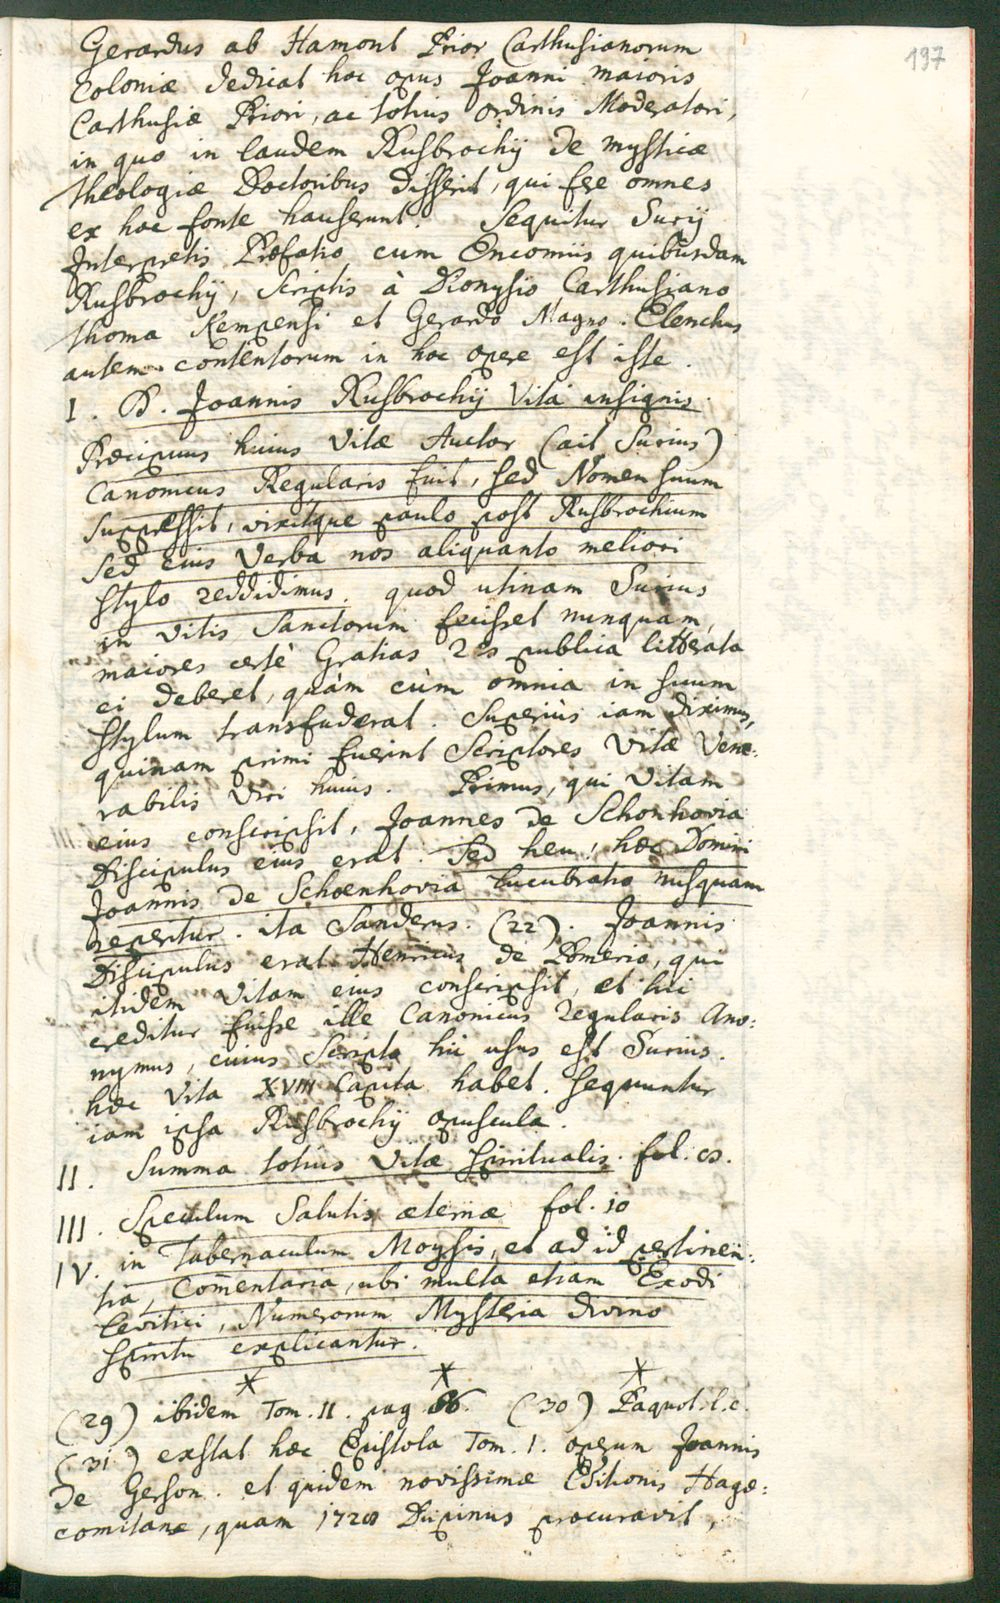 197
Gerardus ab Hamont Prior Carthusianorum
Coloniæ dedicat hoc opus Joanni maioris
Carthusiæ Priori, ac totius ordinis Moderatori,
in quo in laudem Rusbrochij de mysticæ
theologiæ Doctoribus disserit, qui fere omnes
ex hoc fonte hauserunt. Sequitur Surij
Interpretis Præfatio cum Encomiis quibusdam
Rusbrochij, scriptis à Dionysio Carthusiano
Thoma Kempensi et Gerardo Magno. Elenchus
autem contentorum in hoc opere est iste.
I. D. Joannis Rusbrochij Vita insignis.
Præcipuus huius Vitæ Auctor (ait Surius)
Canonicus Regularis fuit, sed Nomen suum
suppressit, vixitque paulo post Rusbrochium
sed eius Verba nos aliquanto meliori
stylo reddidimus. quod utinam Surius
in Vitis Sanctorum fecisset nunquam,
maiores certè Gratias Res publica litterata
ei deberet, quàm cùm omnia in suum
stylum transfuderat. Superiùs iam diximus,
quinam primi fuerint Scriptores Vitæ Vene:
rabilis Viri huius. Primus, qui Vitam
eius conscripsit, Joannes de Schonhovia
Discipulus eius erat. Sed heu! hæc Domini
Joannis de Schoenhovia lucubratio nusquam
reperitur. ita Sanderus. (22). Joannis
Discipulus erat Henricus de Pomerio, qui
itidem Vitam eius conscripsit, et hic
creditur fuisse ille Canonicus Regularis Ano:
nymus, cuius Scripta hic usus est Surius.
hæc Vita XVIII Capita habet. sequuntur
iam ipsa Rusbrochij opuscula.
II. Summa totius Vitæ spiritualis. fol.
III. Speculum Salutis æternæ fol. 10
IV. in Tabernaculum Moysis, et ad id pertinen:
tia, Com̃entaria, ubi multa etiam Exodi
Levitici, Numerorum Mysteria divino
spiritu explicantur.
* * *
(29) ibidem Tom. II. pag. (30) Paquot. l. c.
(31) exstat hæc Epistola Tom. I. operum Joannis
de Gerson. et quidem novissimæ Editionis Hagæ:
comitanæ, quam 1728 Dupinus procuravit,